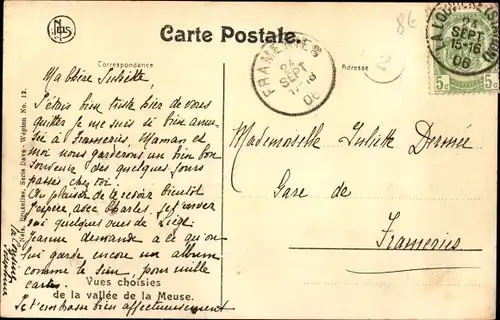 Carte Postale.
8€
NELS
Correspondance
Adresse
2
FRAMERIES
24
SEPT
17-18
06
LA LOUVIÈRE
24
SEPT
15-16
06
5c 5c
Ma chère Juliette,
J'étais bien triste hier de vous
quitter. Je me suis si bien amu-
sée à Frameries, Maman et
moi nous garderons un bien bon
souvenir des quelques jours
passés chez toi.
Au plaisir de te revoir bientôt
j'espère, avec Charles. Je t'envoie
ici quelques vues de Liège
Jeanne demande à ce qu'on
lui garde encore un album
comme le sien, pour mille
cartes.
Vues choisies
de la vallée de la Meuse.
Je t'embrasse bien affectueusement
Ta cousine
Nels, Bruxelles, Serie Dave - Wépion No. 12.
Mademoiselle Juliette Dermée
Gare de
Frameries